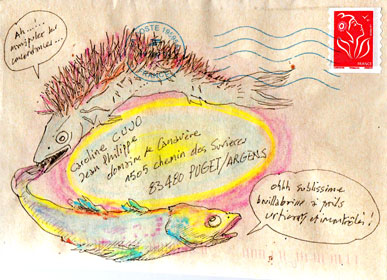 Ah.....
manipuler les
concordances...
POSTE 1859
FRANCE
Caroline CUJO
Jean Philippe
domaine de Canavère
1505 chemin des Suvières
83480 PUGET/ARGENS
Ohhh sublissime
bouillabrine à poils
urticants et incontrôlés!!